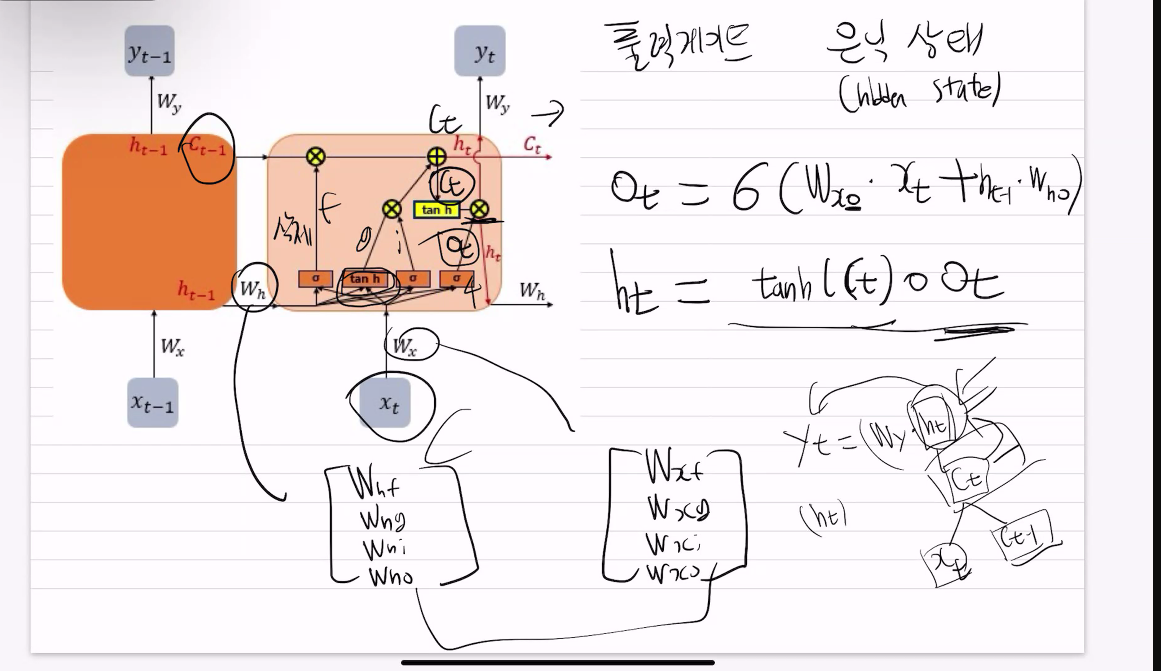 y_{t-1}
y_t
출력게이트 은닉 상태
(hidden state)
W_y
W_y
C_t
h_{t-1} C_{t-1}
h_t C_t
C_t
tan h
f
삭제
g
i
O_t
h_t
σ tan h σ σ
h_{t-1} W_h
W_h
W_x
W_x
x_{t-1}
x_t
O_t = σ(W_{xo} · x_t + h_{t-1} · W_{ho})
h_t = tanh(C_t) ∘ O_t
y_t = (W_y · h_t
C_t
(h_t)
x_t
C_{t-1}
W_{hf}
W_{hg}
W_{hi}
W_{ho}
W_{xf}
W_{xg}
W_{xi}
W_{xo}